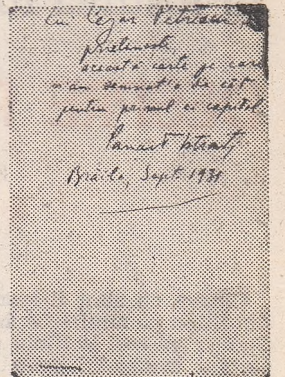 Lui Cezar Petrescu
prietenește,
această carte pe care
n'am semnat-o de cât
pentru primul ei capitol
Panait Istrati
Brăila, Sept. 1931